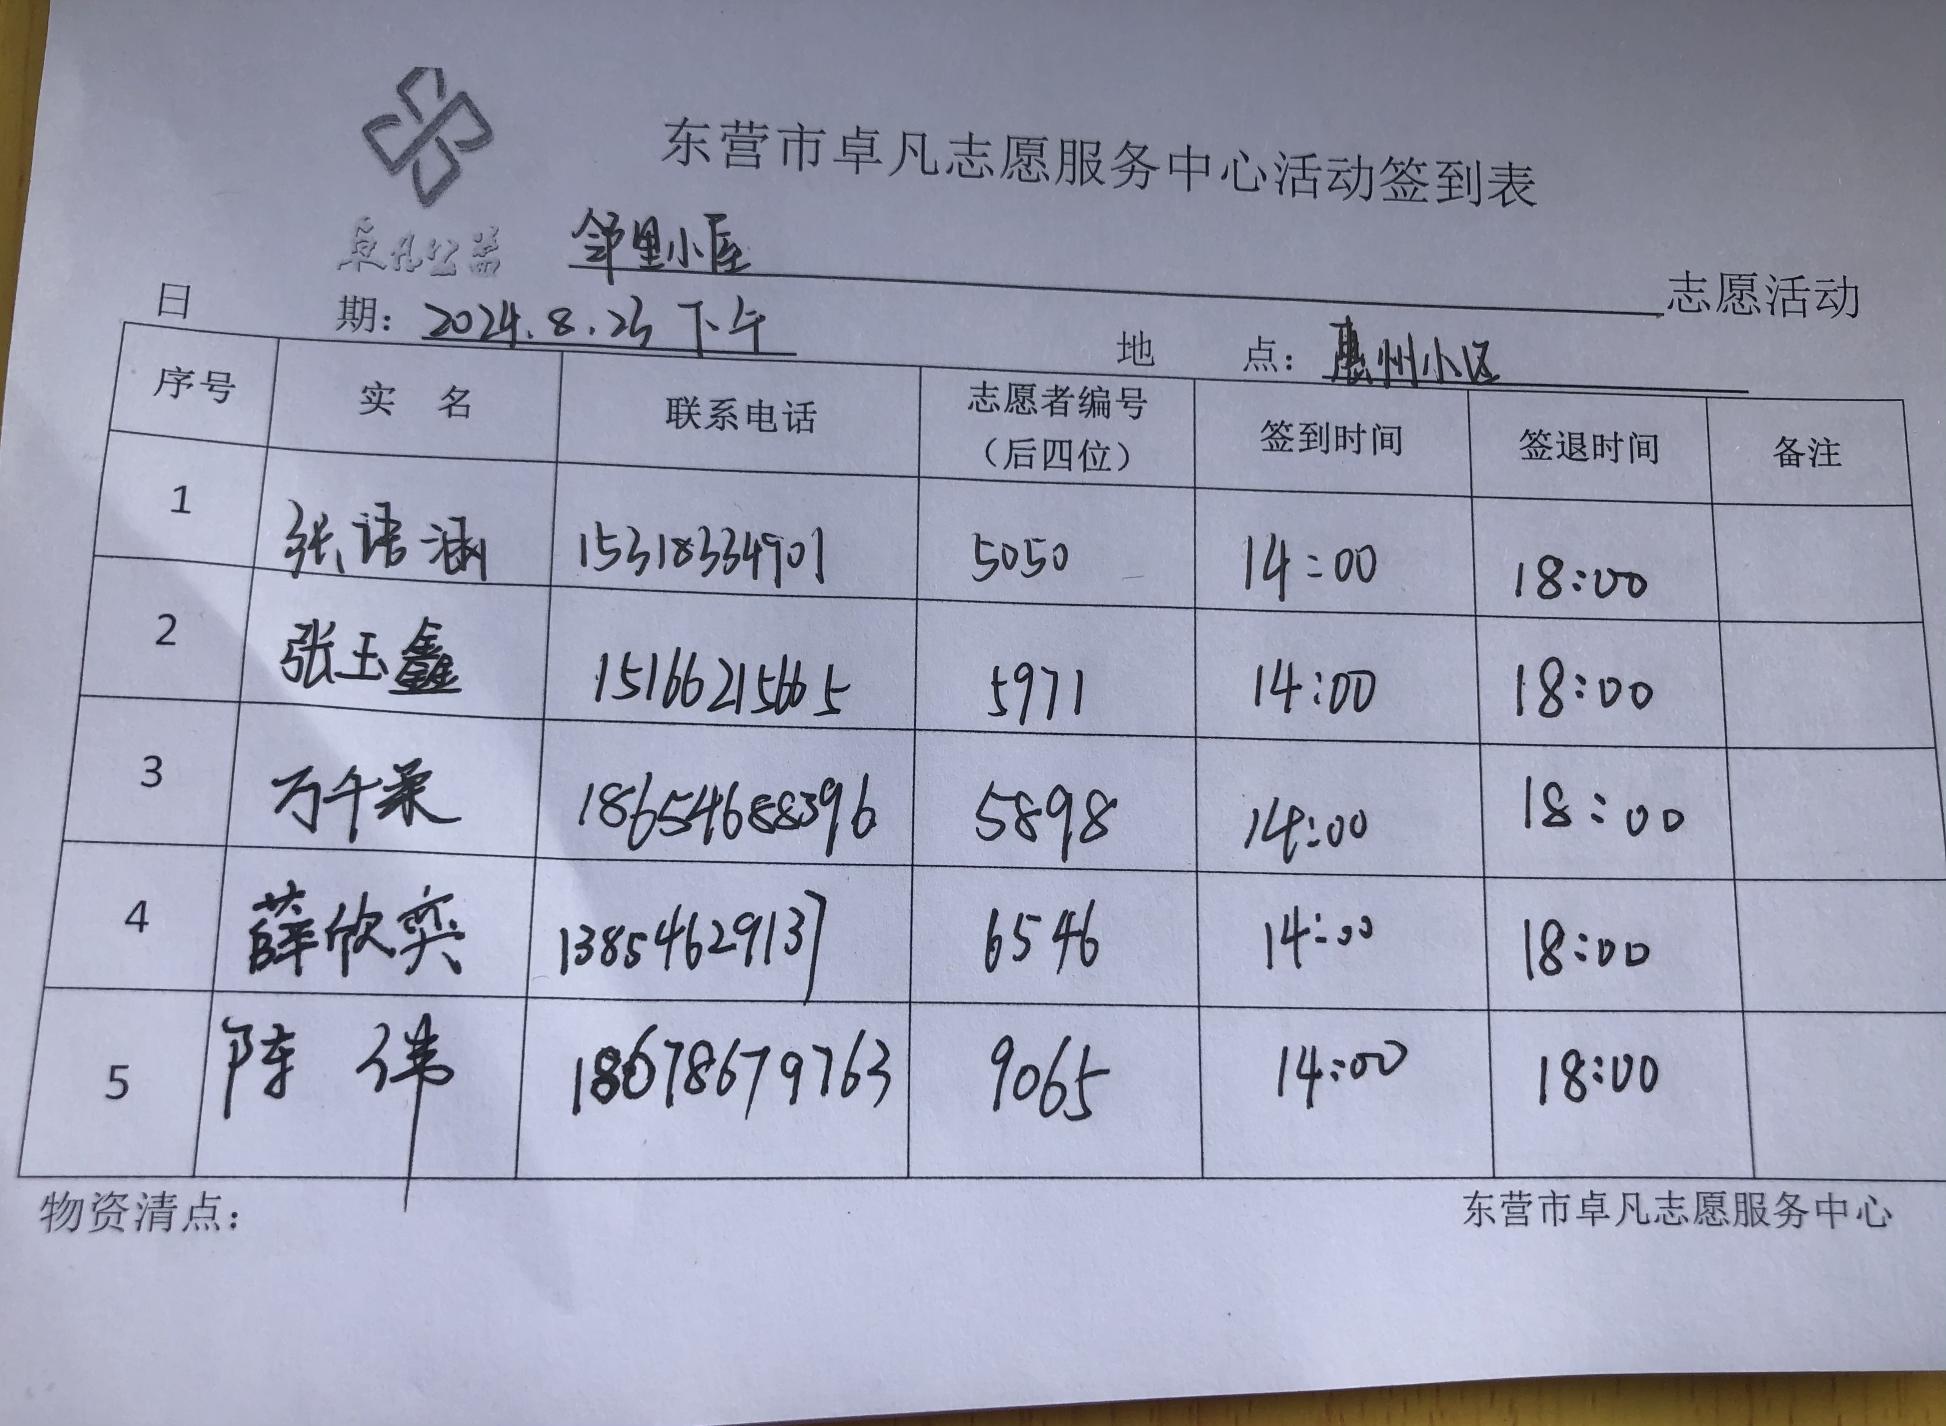 东营市卓凡志愿服务中心活动签到表
卓凡公益
邻里小屋 志愿活动
日 期：2024.8.23 下午 地 点：惠州小区
序号 实 名 联系电话 志愿者编号（后四位） 签到时间 签退时间 备注
1 张语涵 15318334901 5050 14:00 18:00
2 张玉鑫 15166215665 5971 14:00 18:00
3 万千柔 18654688396 5898 14:00 18:00
4 薛欣奕 13854629137 6546 14:00 18:00
5 陈伟 18678679763 9065 14:00 18:00
物资清点： 东营市卓凡志愿服务中心